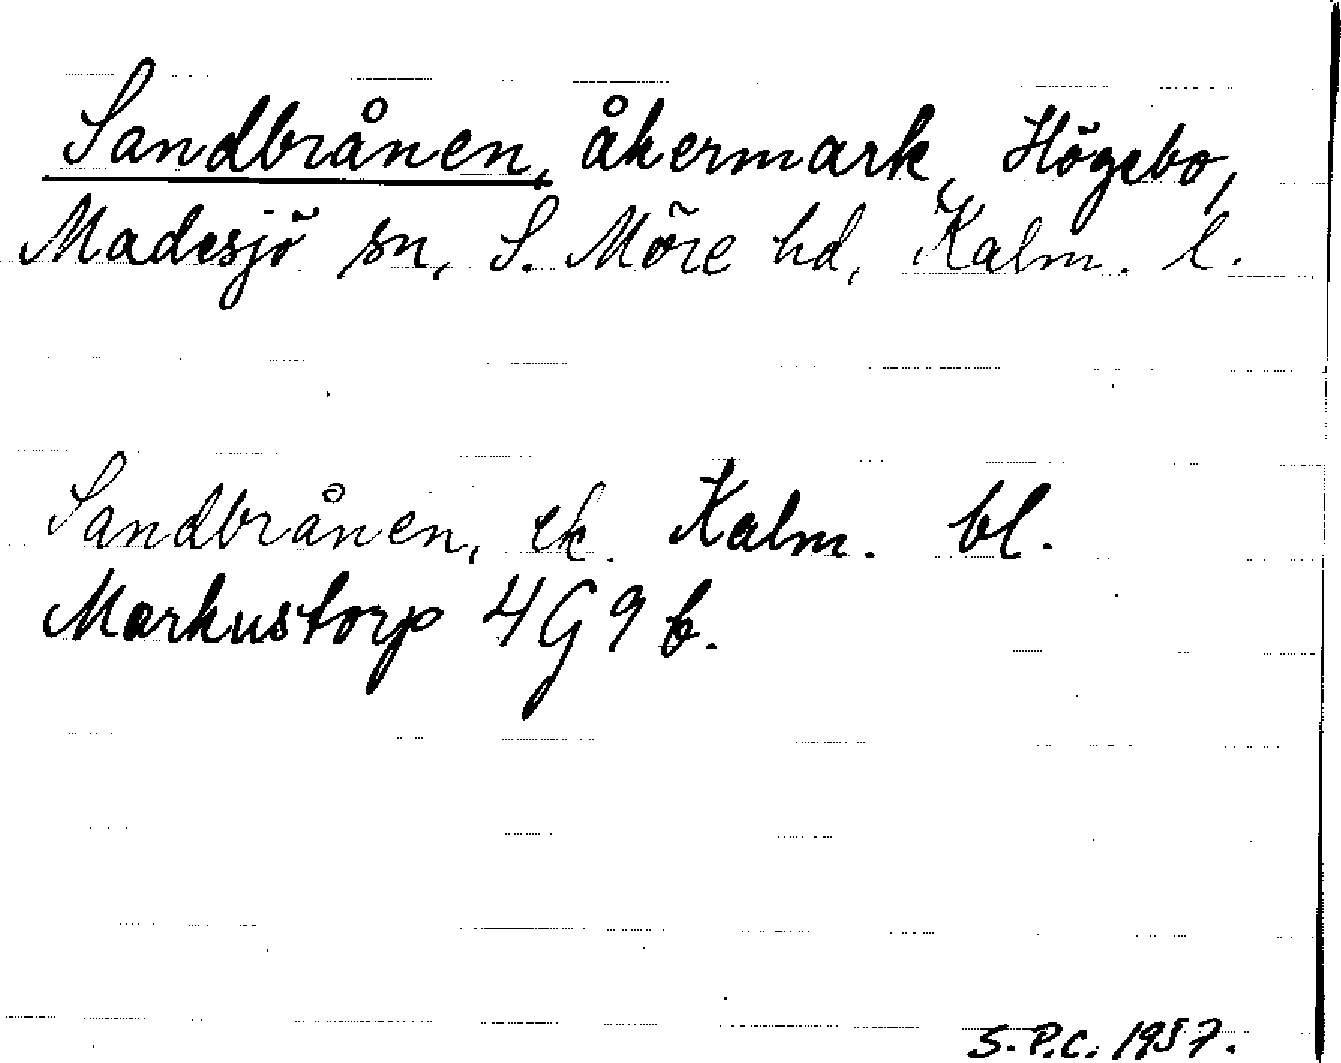 Sandbrånen, åkermark, Högebo,
Madesjö sn, S. Möre hd, Kalm. l.
Sandbrånen, ek. Kalm. bl.
Markustorp 4G9b.
S.P.C. 1957.